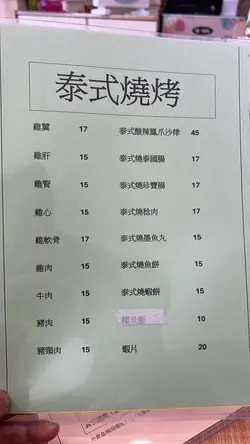 泰式燒烤
雞翼 17
雞肝 15
雞腎 15
雞心 15
雞軟骨 17
雞肉 15
牛肉 15
豬肉 15
豬頸肉 15
泰式酸辣鳳爪沙律 45
泰式燒泰國腸 17
泰式燒珍寶腸 17
泰式燒稔肉 17
泰式燒墨魚丸 15
泰式燒魚餅 15
泰式燒蝦餅 15
糯米飯 10
蝦片 20